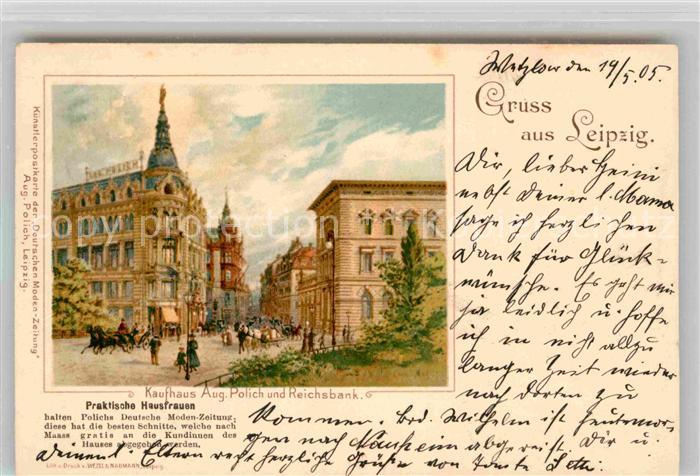 Wetzlar den 19/5.05.
Gruss
aus Leipzig.
AUG. POLICH
Künstlerpostkarte der "Deutschen Moden-Zeitung"
Aug. Polich, Leipzig.
Dir, lieber Heini
nebst deiner l. Mama
sage ich herzlichen
Dank für Glück-
wünsche. Es geht mir
ja leidlich u. hoffe
ich in nicht allzu
langer Zeit wieder
nach dorten zu
Kaufhaus Aug. Polich und Reichsbank.
Praktische Hausfrauen
halten Polichs Deutsche Moden-Zeitung;
diese hat die besten Schnitte, welche nach
Maass gratis an die Kundinnen des
Hauses abgegeben werden.
Lith. u. Druck v. WEZEL & NAUMANN, Leipzig.
kommen. Brd. Wilhelm ist heute mor-
gen nach Nauheim abgereist. Dir u.
deinen l. Eltern recht herzliche Grüße von Tante
copyright